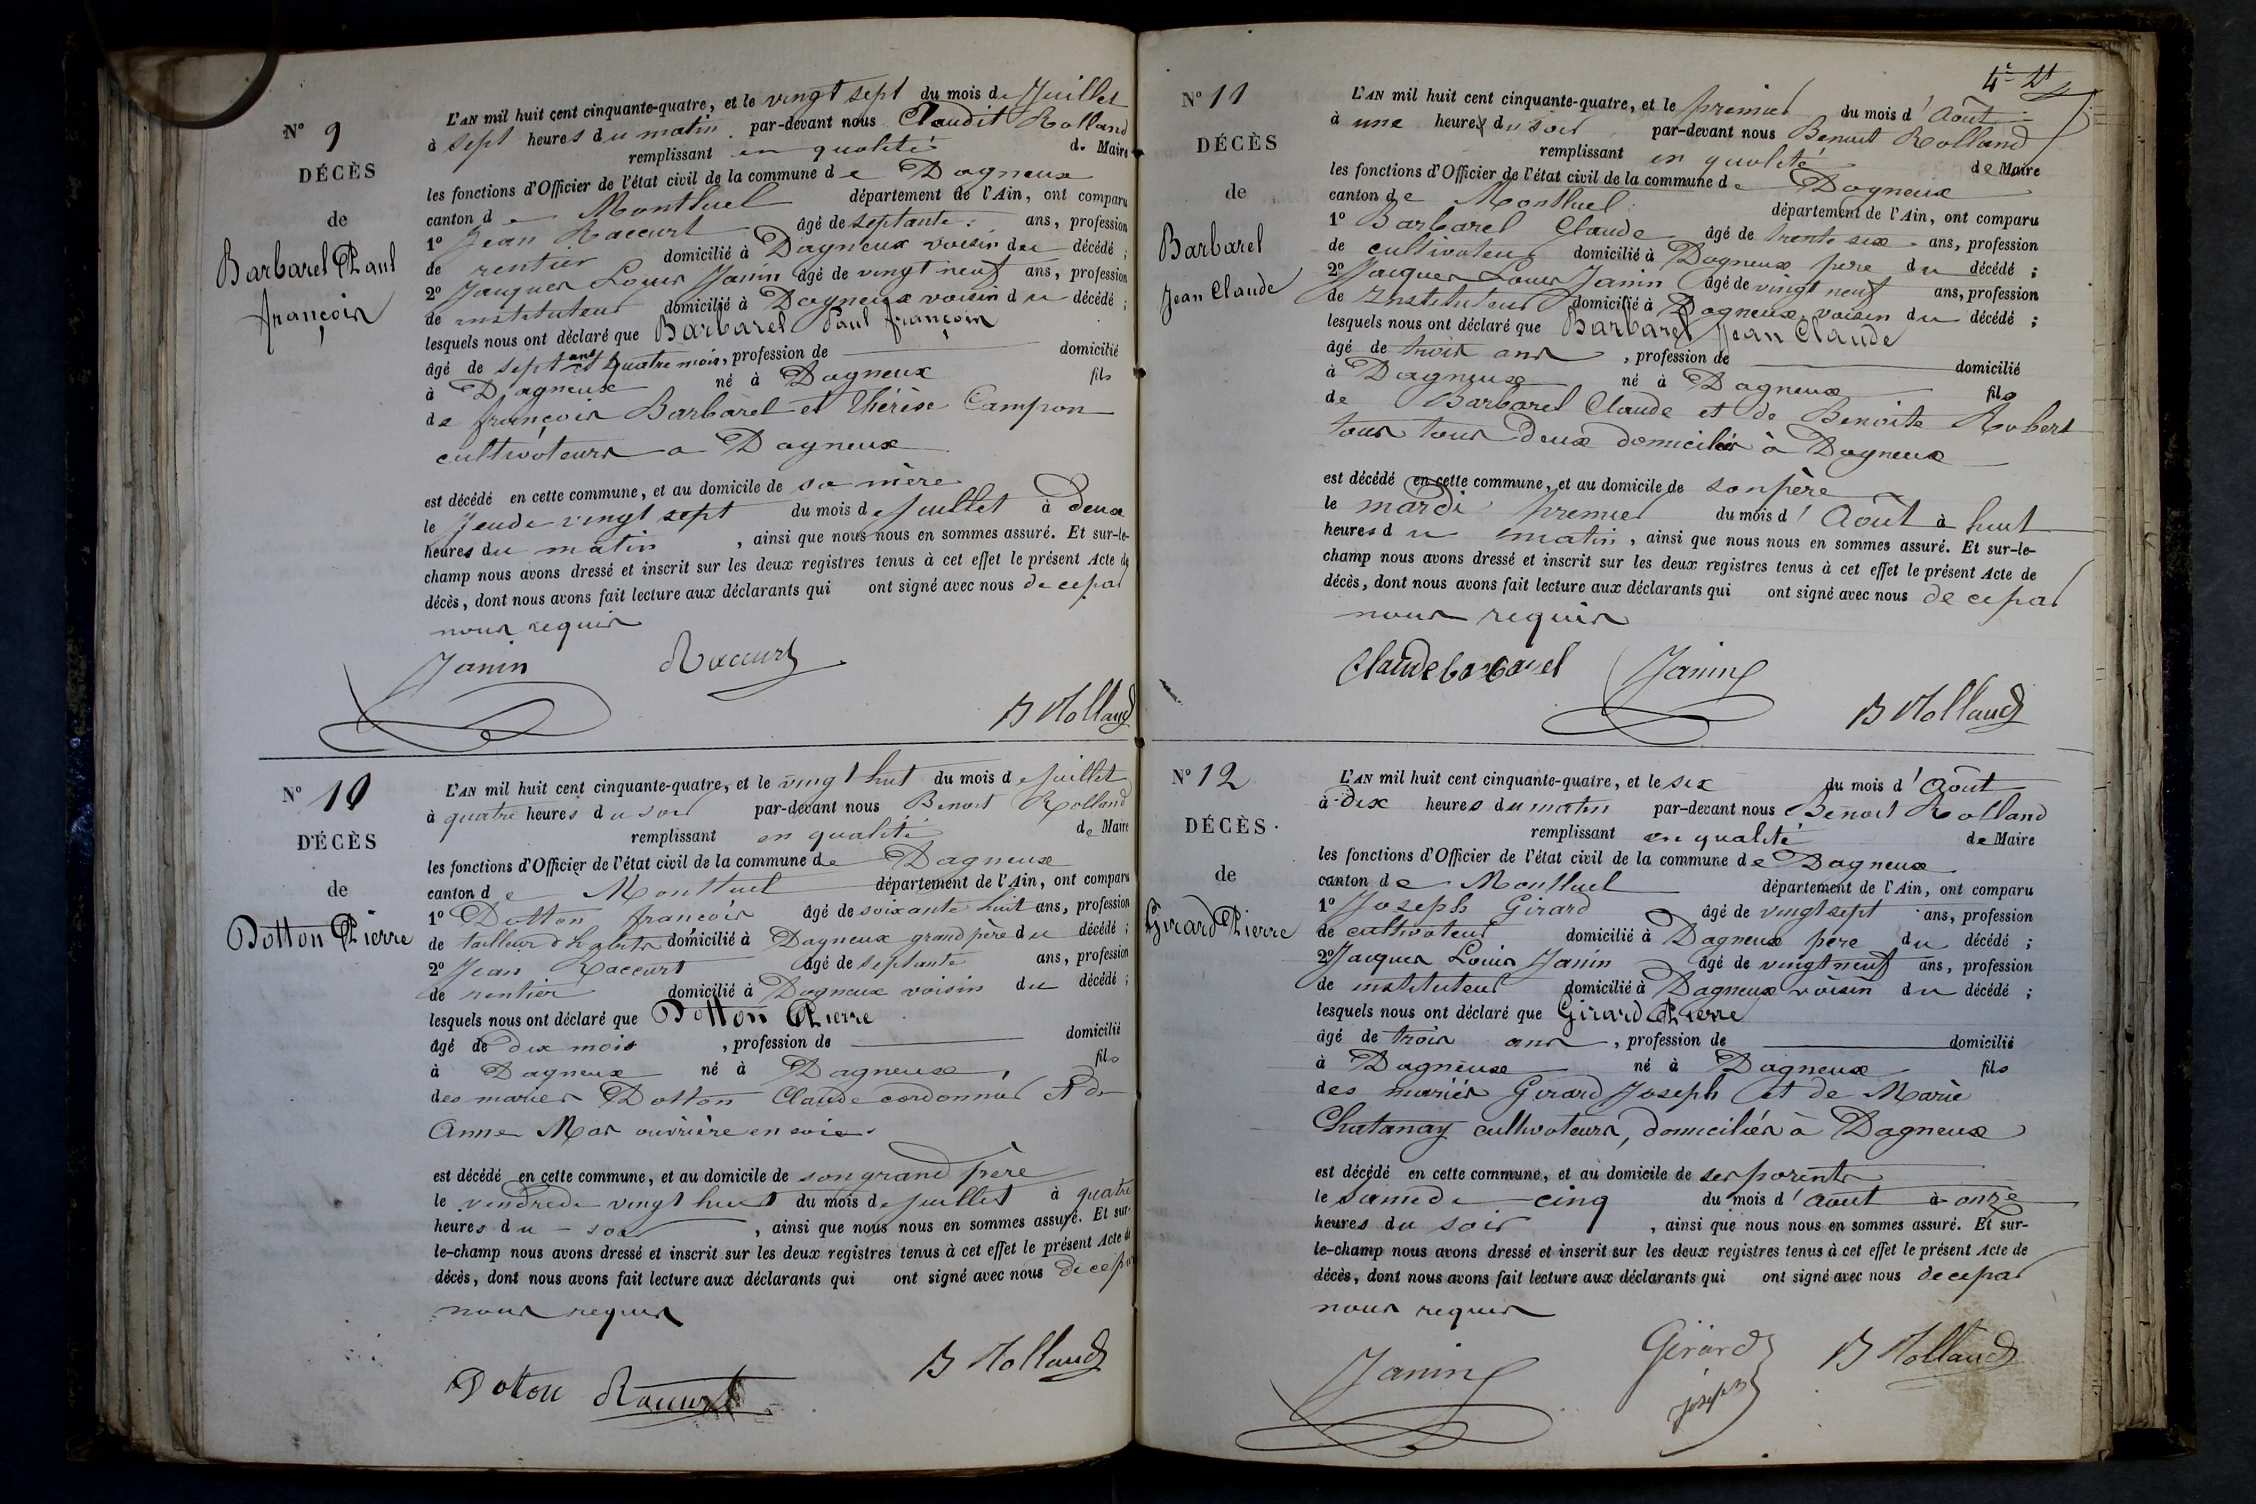 N° 9
DÉCÈS
de
Barbarel Paul
françois
L'AN mil huit cent cinquante-quatre, et le vingt sept du mois de Juillet
à sept heures du matin par-devant nous Claudit Rolland
remplissant en qualité de Maire
les fonctions d'Officier de l'état civil de la commune de Dagneux
canton de Montluel département de l'Ain, ont comparu
1° Jean Raccurt âgé de septante ans, profession
de rentier domicilié à Dagneux voisin du décédé ;
2° Jacques Louis Janin âgé de vingt neuf ans, profession
de instituteur domicilié à Dagneux voisin du décédé ;
lesquels nous ont déclaré que Barbarel Paul françois
âgé de sept ans et quatre mois, profession de domicilié
à Dagneux né à Dagneux fils
de françois Barbarel et Thérèse Campron
cultivateurs a Dagneux
est décédé en cette commune, et au domicile de sa mère
le Jeude vingt sept du mois de juillet à deux
heures du matin , ainsi que nous nous en sommes assuré. Et sur-le-
champ nous avons dressé et inscrit sur les deux registres tenus à cet effet le présent Acte de
décès, dont nous avons fait lecture aux déclarants qui ont signé avec nous de ce par
nous requis
Janin Raccurt
B Rolland
N° 10
DÉCÈS
de
Dotton Pierre
L'AN mil huit cent cinquante-quatre, et le vingt huit du mois de juillet
à quatre heures du soir par-devant nous Benoit Rolland
remplissant en qualité de Maire
les fonctions d'Officier de l'état civil de la commune de Dagneux
canton de Montluel département de l'Ain, ont comparu
1° Dotton françois âgé de soixante huit ans, profession
de tailleur d'habits domicilié à Dagneux grand père du décédé ;
2° Jean Raccurt âgé de septante ans, profession
de rentier domicilié à Dagneux voisin du décédé ;
lesquels nous ont déclaré que Dotton Pierre
âgé de dix mois , profession de domicilié
à Dagneux né à Dagneux, fils
des mariés Dotton Claude cordonnier et de
Anne Mas ouvrière en soie
est décédé en cette commune, et au domicile de son grand père
le vendrede vingt huit du mois de juillet à quatre
heures du soir , ainsi que nous nous en sommes assuré. Et sur-
le-champ nous avons dressé et inscrit sur les deux registres tenus à cet effet le présent Acte de
décès, dont nous avons fait lecture aux déclarants qui ont signé avec nous de ce par
nous requis
B Rolland
Doton Raccurt
4e
N° 11
DÉCÈS
de
Barbarel
Jean Claude
L'AN mil huit cent cinquante-quatre, et le premier du mois d'Août
à une heure du soir par-devant nous Benoit Rolland
remplissant en qualité de Maire
les fonctions d'Officier de l'état civil de la commune de Dagneux
canton de Montluel département de l'Ain, ont comparu
1° Barbarel Claude âgé de trente six ans, profession
de cultivateur domicilié à Dagneux père du décédé ;
2° Jacques Louis Janin âgé de vingt neuf ans, profession
de Instituteur domicilié à Dagneux voisin du décédé ;
lesquels nous ont déclaré que Barbarel Jean Claude
âgé de trois ans , profession de domicilié
à Dagneux né à Dagneux fils
de Barbarel Claude et de Benoite Robert
tous tous deux domiciliés à Dagneux
est décédé en cette commune, et au domicile de son père
le mardi premier du mois d'Août à huit
heures du matin , ainsi que nous nous en sommes assuré. Et sur-le-
champ nous avons dressé et inscrit sur les deux registres tenus à cet effet le présent Acte de
décès, dont nous avons fait lecture aux déclarants qui ont signé avec nous de ce par
nous requis
Claude barbarel Janin
B Rolland
N° 12
DÉCÈS
de
Girard Pierre
L'AN mil huit cent cinquante-quatre, et le six du mois d'Août
à dix heures du matin par-devant nous Benoit Rolland
remplissant en qualité de Maire
les fonctions d'Officier de l'état civil de la commune de Dagneux
canton de Montluel département de l'Ain, ont comparu
1° Joseph Girard âgé de vingt sept ans, profession
de cultivateur domicilié à Dagneux père du décédé ;
2° Jacques Louis Janin âgé de vingt neuf ans, profession
de instituteur domicilié à Dagneux voisin du décédé ;
lesquels nous ont déclaré que Girard Pierre
âgé de trois ans , profession de domicilié
à Dagneux né à Dagneux fils
des mariés Girard Joseph et de Marie
Chatanay cultivateurs, domiciliés à Dagneux
est décédé en cette commune, et au domicile de ses parents
le samede cinq du mois d'Aout à onze
heures du soir , ainsi que nous nous en sommes assuré. Et sur-
le-champ nous avons dressé et inscrit sur les deux registres tenus à cet effet le présent Acte de
décès, dont nous avons fait lecture aux déclarants qui ont signé avec nous de ce par
nous requis
Janin Girard B Rolland
joseph